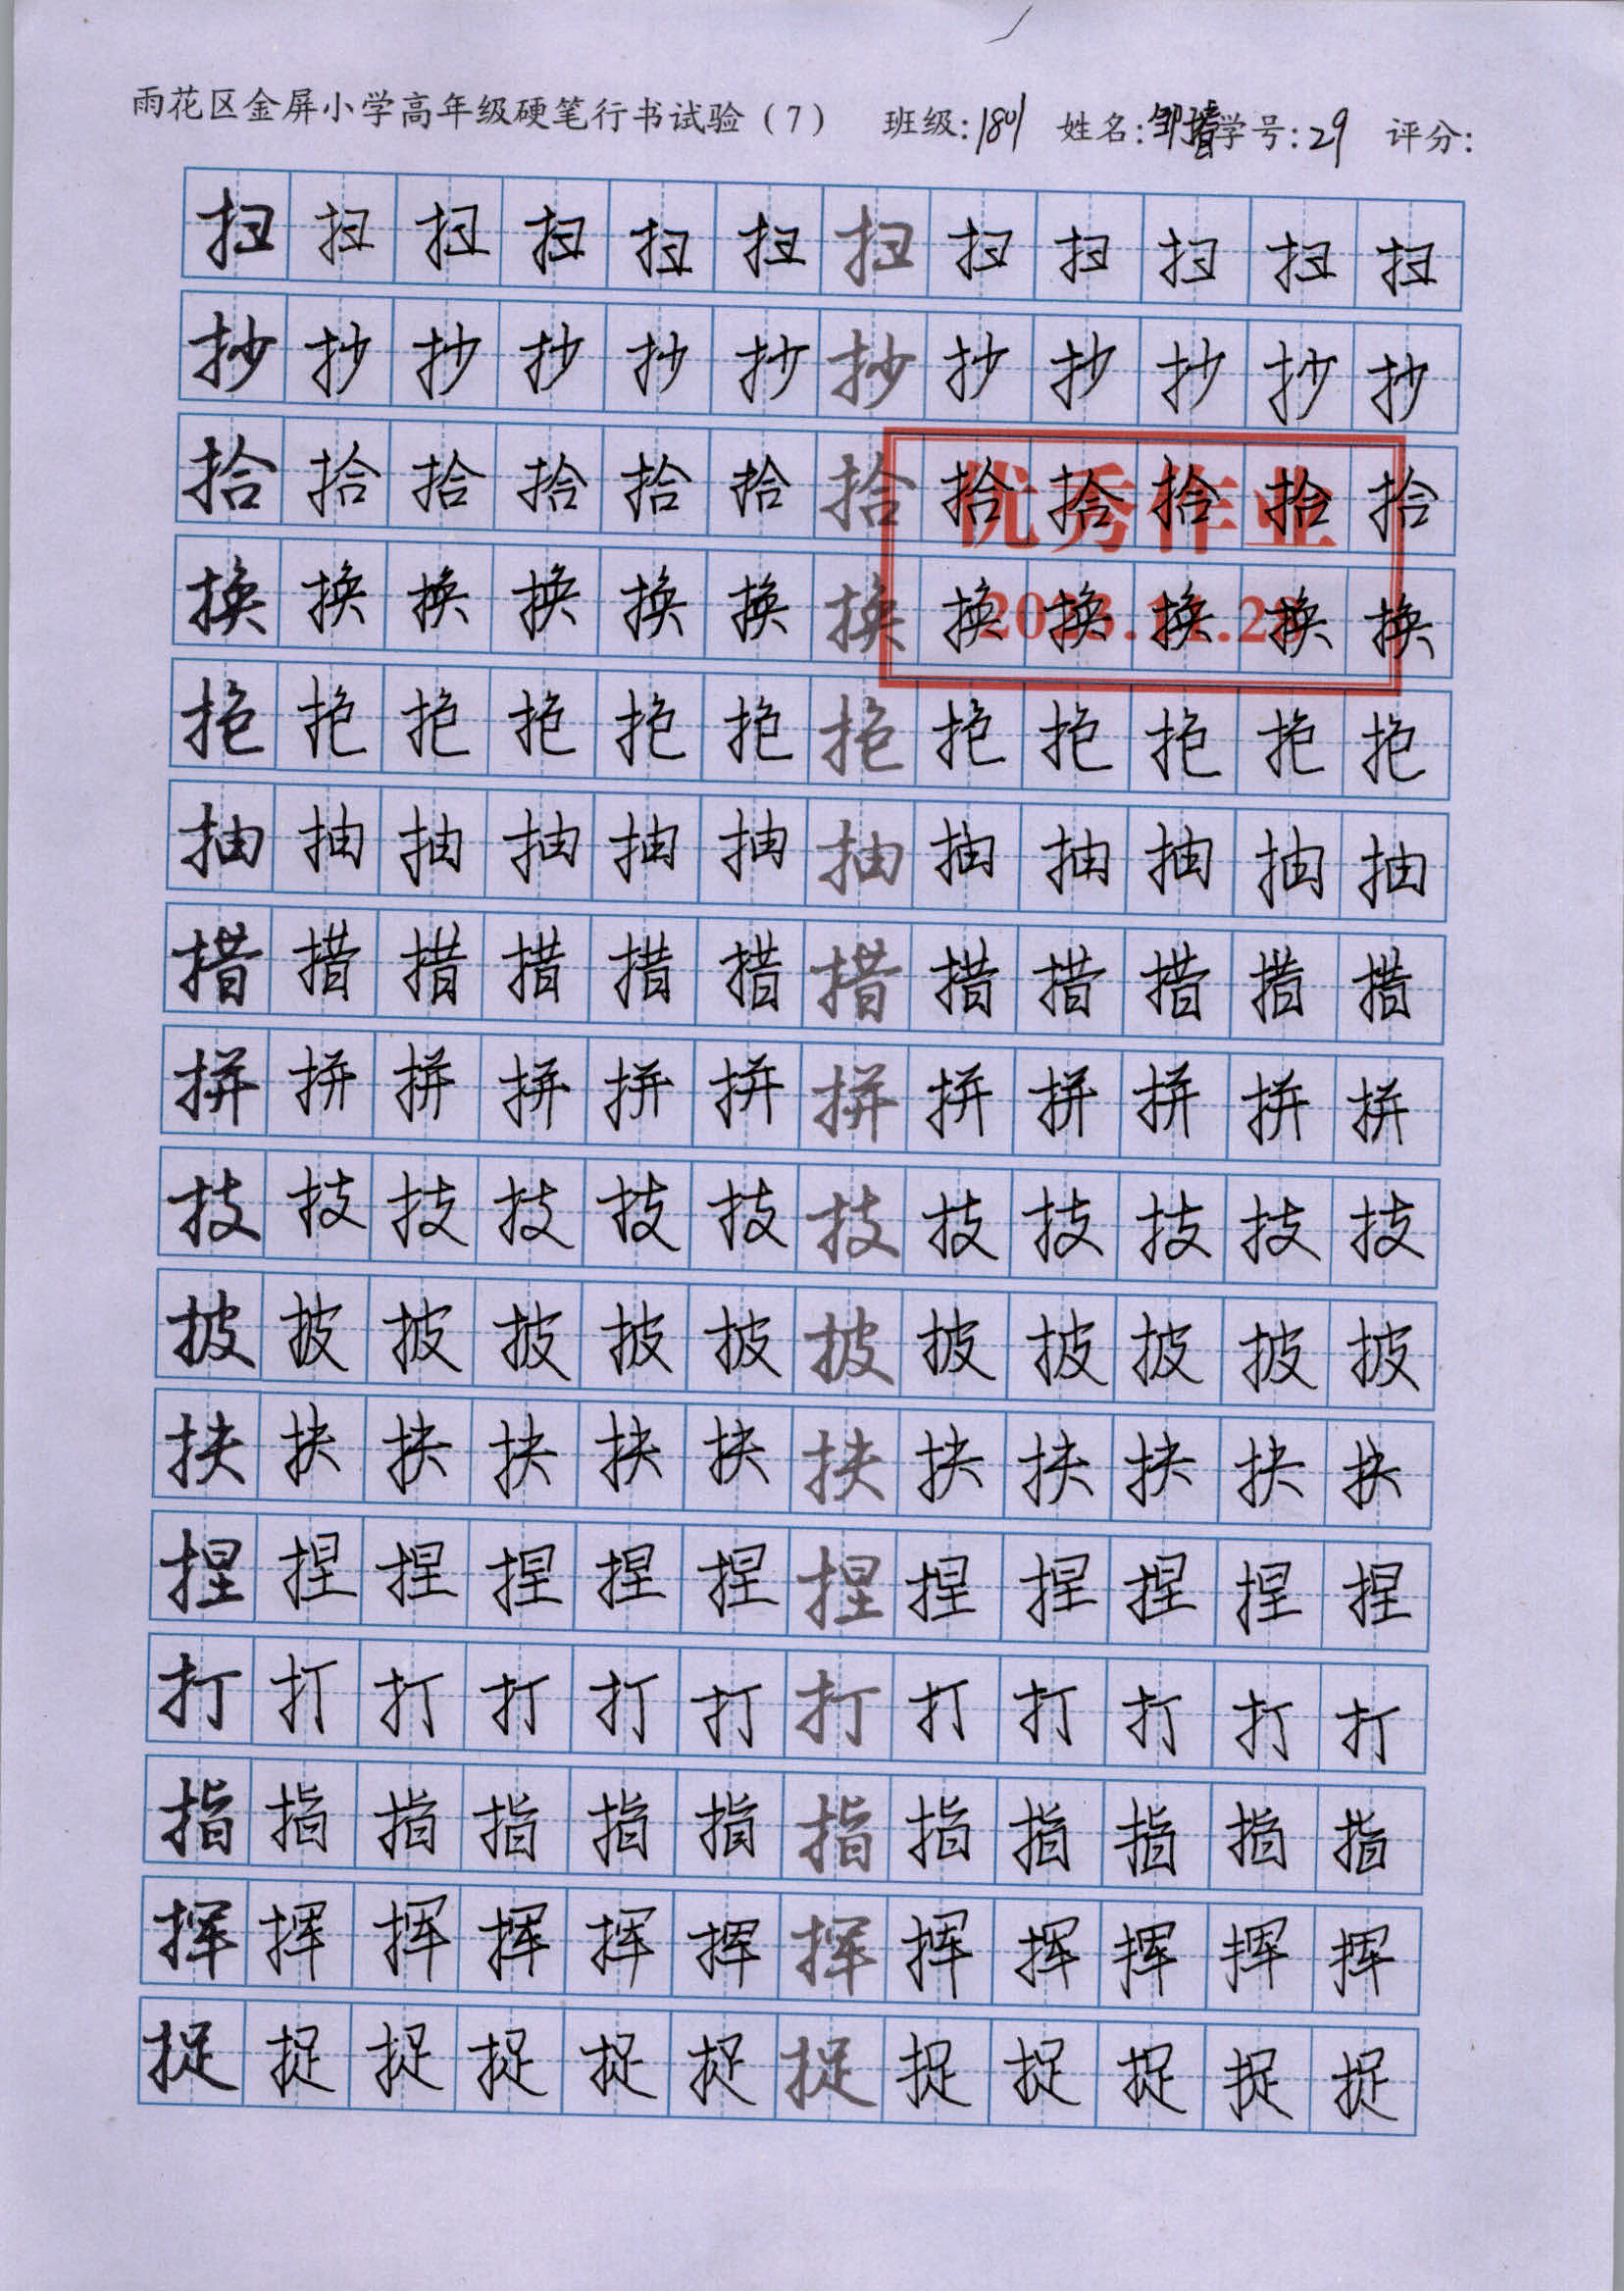 雨花区金屏小学高年级硬笔行书试验（7） 班级:1801 姓名:邹 学号:29 评分:
扫扫扫扫扫扫扫扫扫扫扫扫
抄抄抄抄抄抄抄抄抄抄抄抄
拾拾拾拾拾拾拾拾拾拾拾拾
优秀作业
换换换换换换换换换换换换
抱抱抱抱抱抱抱抱抱抱抱抱
抽抽抽抽抽抽抽抽抽抽抽抽
措措措措措措措措措措措措
拼拼拼拼拼拼拼拼拼拼拼拼
技技技技技技技技技技技技
披披披披披披披披披披披披
扶扶扶扶扶扶扶扶扶扶扶扶
捏捏捏捏捏捏捏捏捏捏捏捏
打打打打打打打打打打打打
指指指指指指指指指指指指
挥挥挥挥挥挥挥挥挥挥挥挥
捉捉捉捉捉捉捉捉捉捉捉捉